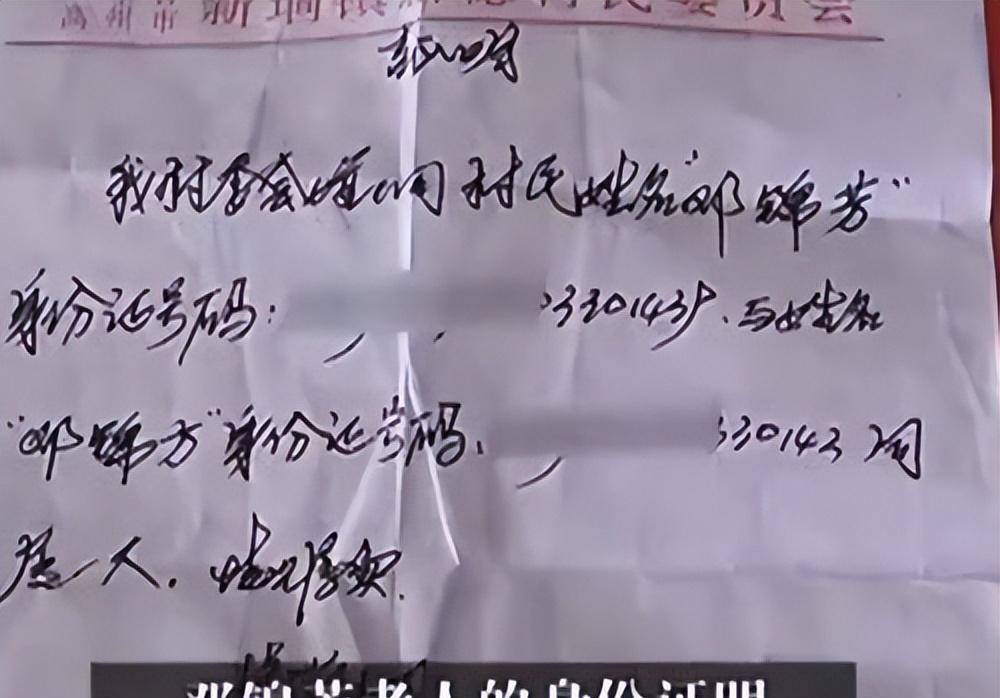 高州市新垌镇 村民委员会
证明
我村委会 垌村民姓名"邓锦芳"
身份证号码: 330143 与姓名
"邓锦方"身份证号码: 330143 同
是一人. 情况属实.
邓锦芳老人的身份证明